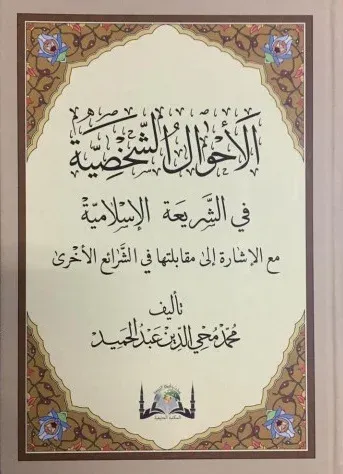 الأحوال الشخصية
في الشريعة الإسلامية
مع الإشارة إلى مقابلتها في الشرائع الأخرى
تأليف
محمد محي الدين عبد الحميد